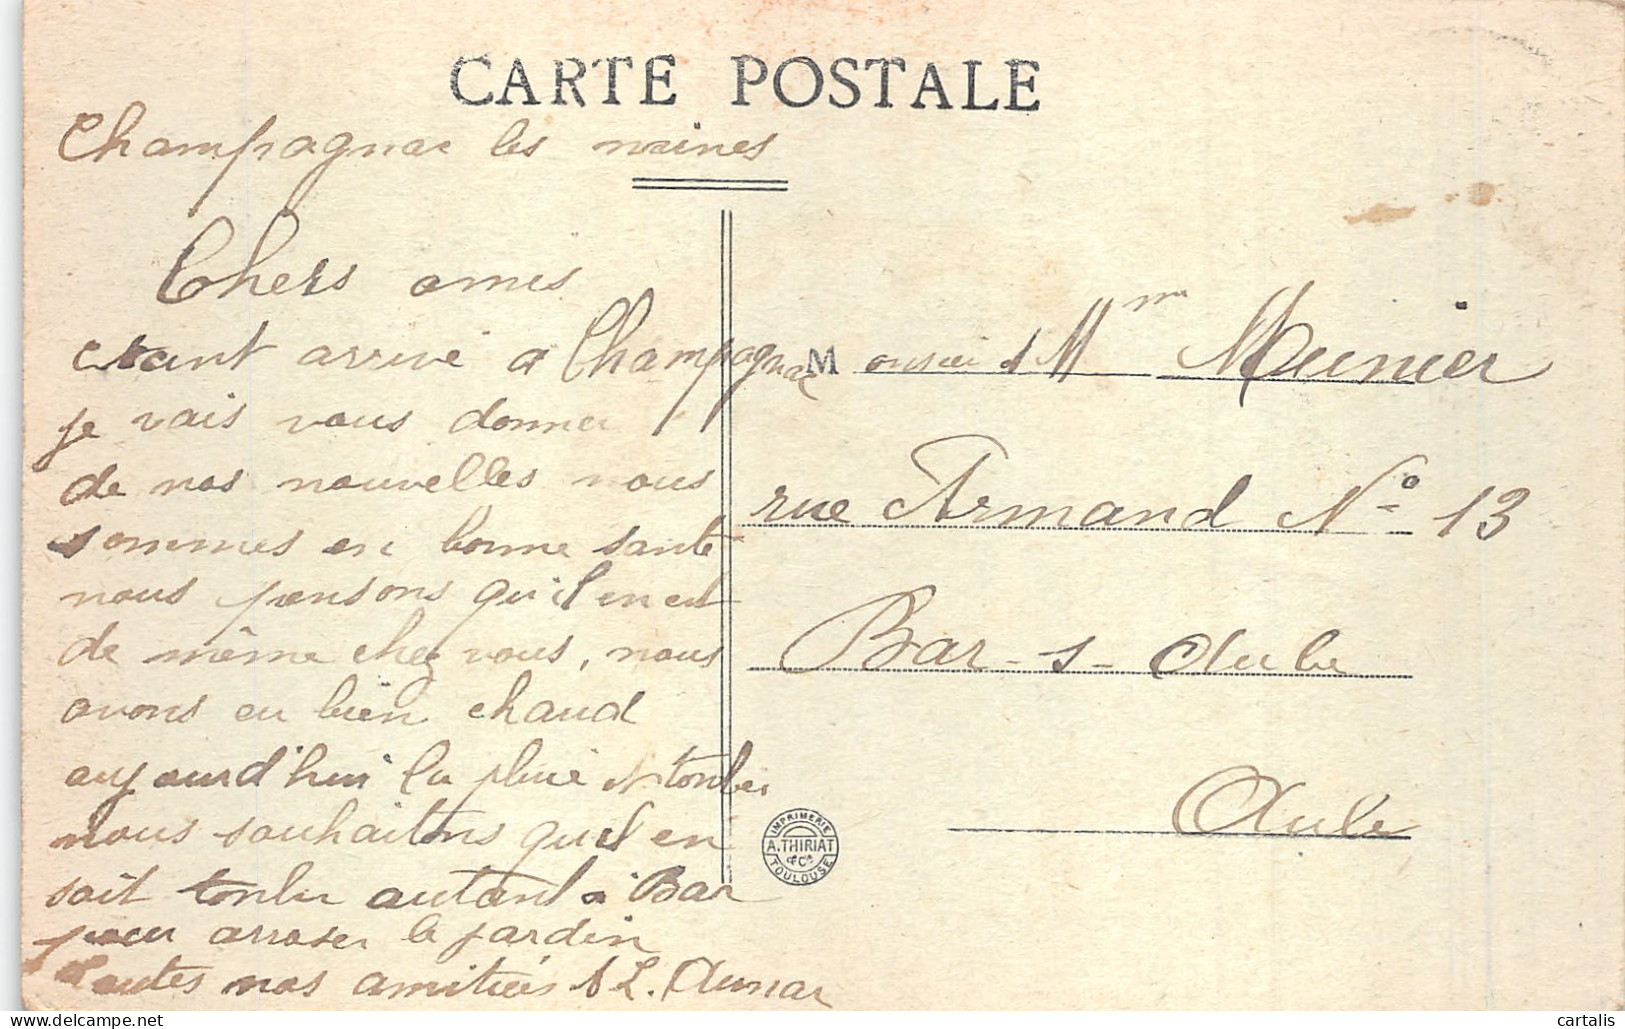 CARTE POSTALE
Champagnac les mines
Chers amis
etant arrivé a Champagnac
je vais vous donner
de nos nouvelles nous
sommes en bonne santé
nous pensons qu'il en est
de même chez vous, nous
avons eu bien chaud
aujourd'hui la pluie est tombé
nous souhaitons qu'il en
soit tombu autant a Bar
pour arroser le jardin
Toutes nos amitiés L. Aumar
Monsieur M me Meunier
rue Armand N° 13
Bar - s - Aube
Aube
IMPRIMERIE
A. THIRIAT
& Cie
TOULOUSE
delcampe.net
cartalis